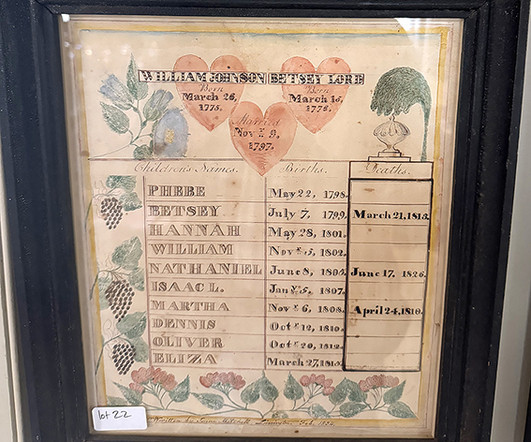 WILLIAM JOHNSON BETSEY LORD
Born Born
March 26, March 15,
1775. 1776.
Married
Nov.r 9.
1797.
Children's Names. Births. Deaths.
PHEBE May 22, 1798.
BETSEY July 7, 1799. March 21, 1813.
HANNAH May 28, 1801.
WILLIAM Nov.r 5, 1802.
NATHANIEL June 8, 1805. June 17, 1826.
ISAAC L. Jan.y 5, 1807.
MARTHA Nov.r 6, 1808. April 24, 1810.
DENNIS Oct.r 12, 1810.
OLIVER Oct.r 20, 1812.
ELIZA March 27, 1815.
Written by Feb.
lot 22